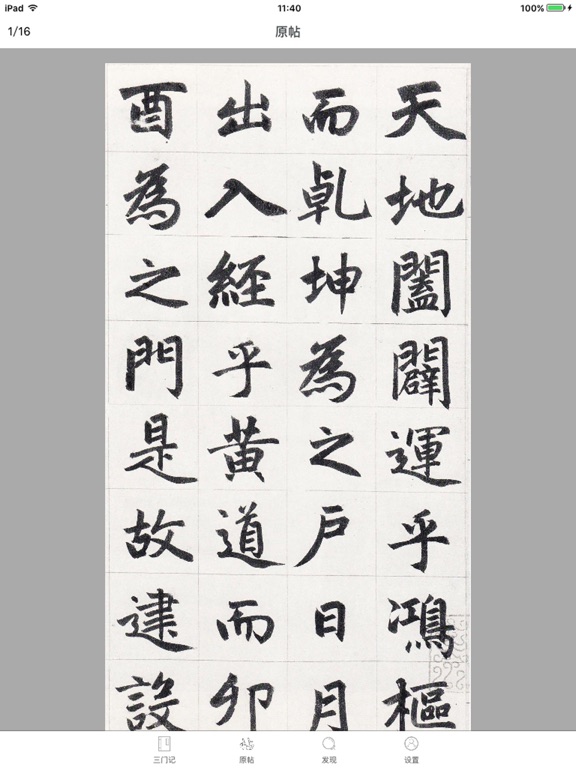 iPad 11:40 100%
1/16 原帖
天地闔闢運乎鴻樞
而乹坤為之户日月
出入經乎黄道而卯
酉為之門是故建設
三门记 原帖 发现 设置